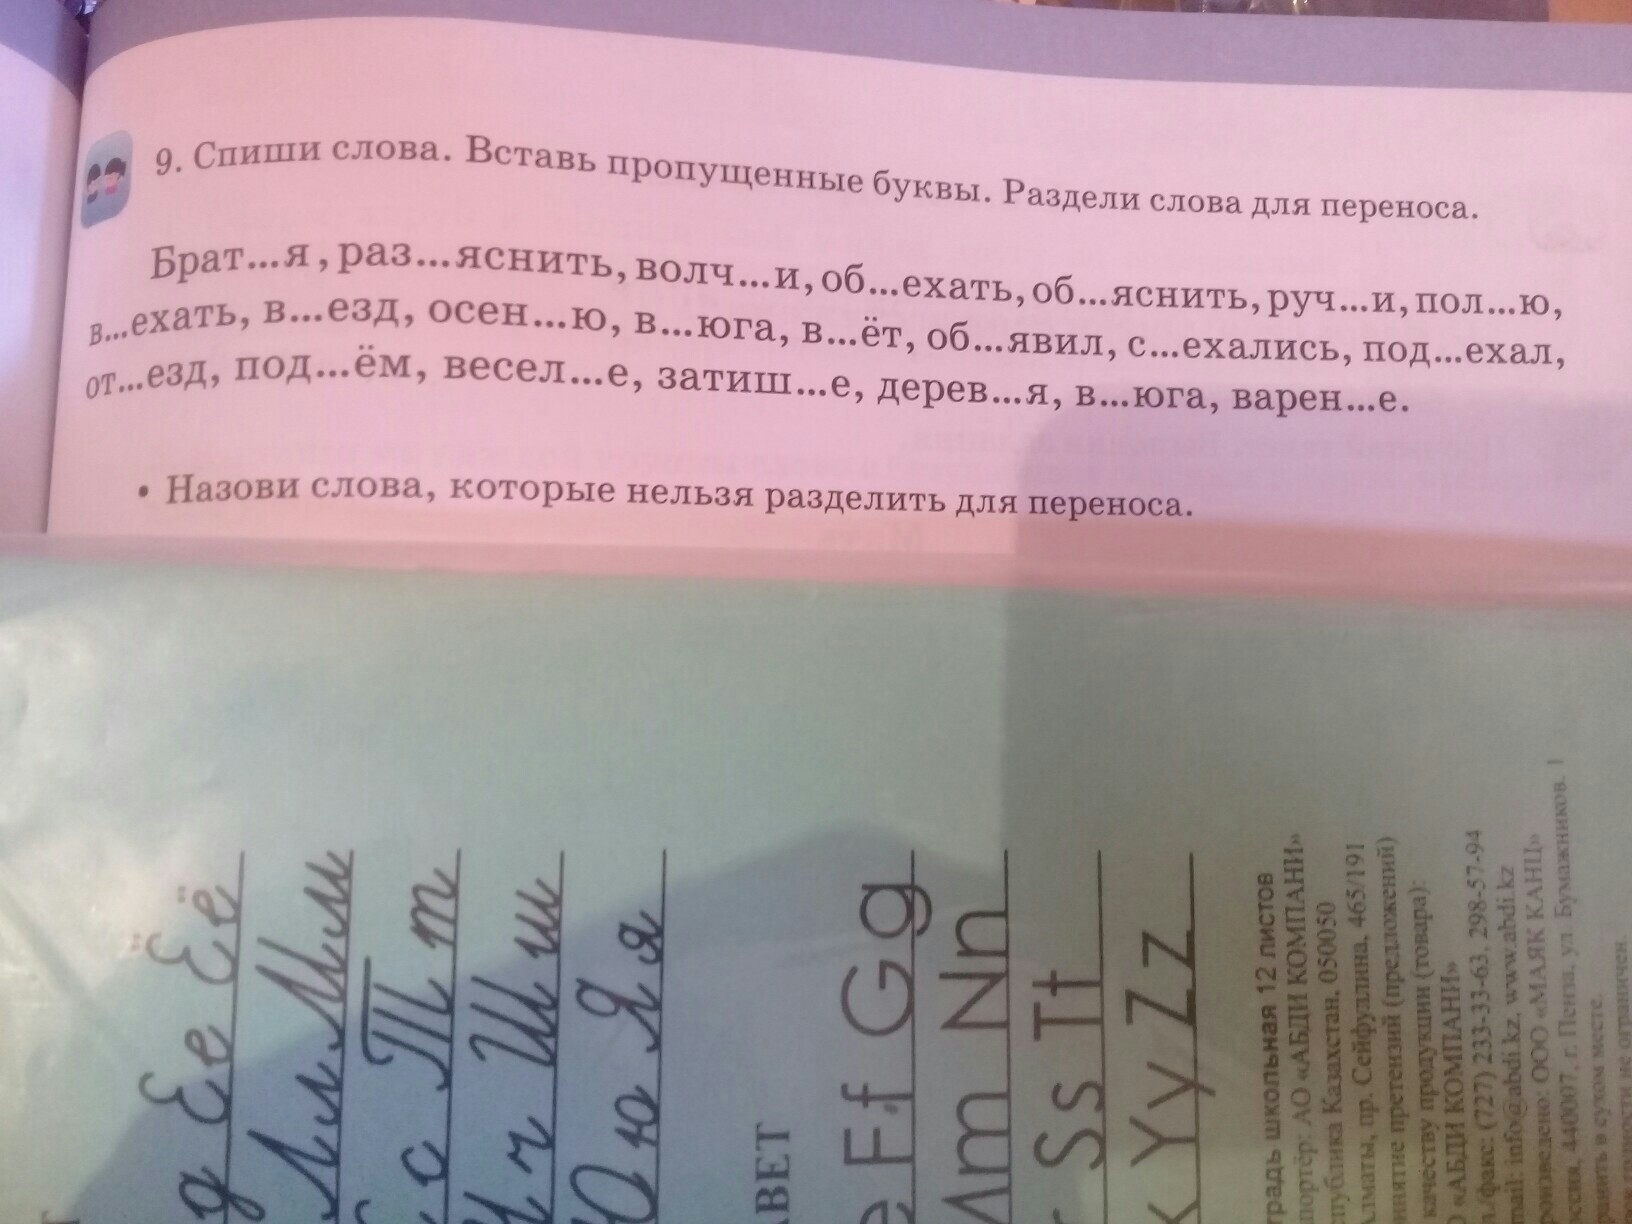 9. Спиши слова. Вставь пропущенные буквы. Раздели слова для переноса.
Брат...я, раз...яснить, волч...и, об...ехать, об...яснить, руч...и, пол...ю,
в...ехать, в...езд, осен...ю, в...юга, в...ёт, об...явил, с...ехались, под...ехал,
от...езд, под...ём, весел...е, затиш...е, дерев...я, в...юга, варен...е.
• Назови слова, которые нельзя разделить для переноса.
д Ее Ёё
Лл Мм
с Тт
ч Шш
Юю Яя
АВЕТ
e Ff Gg
Mm Nn
Ss Tt
Yy Zz
традь школьная 12 листов
мпортёр: АО «АБДИ КОМПАНИ»
спублика Казахстан, 050050
лматы, пр. Сейфуллина, 465/191
инятие претензий (предложений)
качеству продукции (товара):
О «АБДИ КОМПАНИ»
л./факс: (727) 233-33-63, 298-57-94
mail: info@abdi.kz, www.abdi.kz
роизведено: ООО «МАЯК КАНЦ»
оссия, 440007, г. Пенза, ул. Бумажников, 1
ранить в сухом месте.
годности не ограничен.